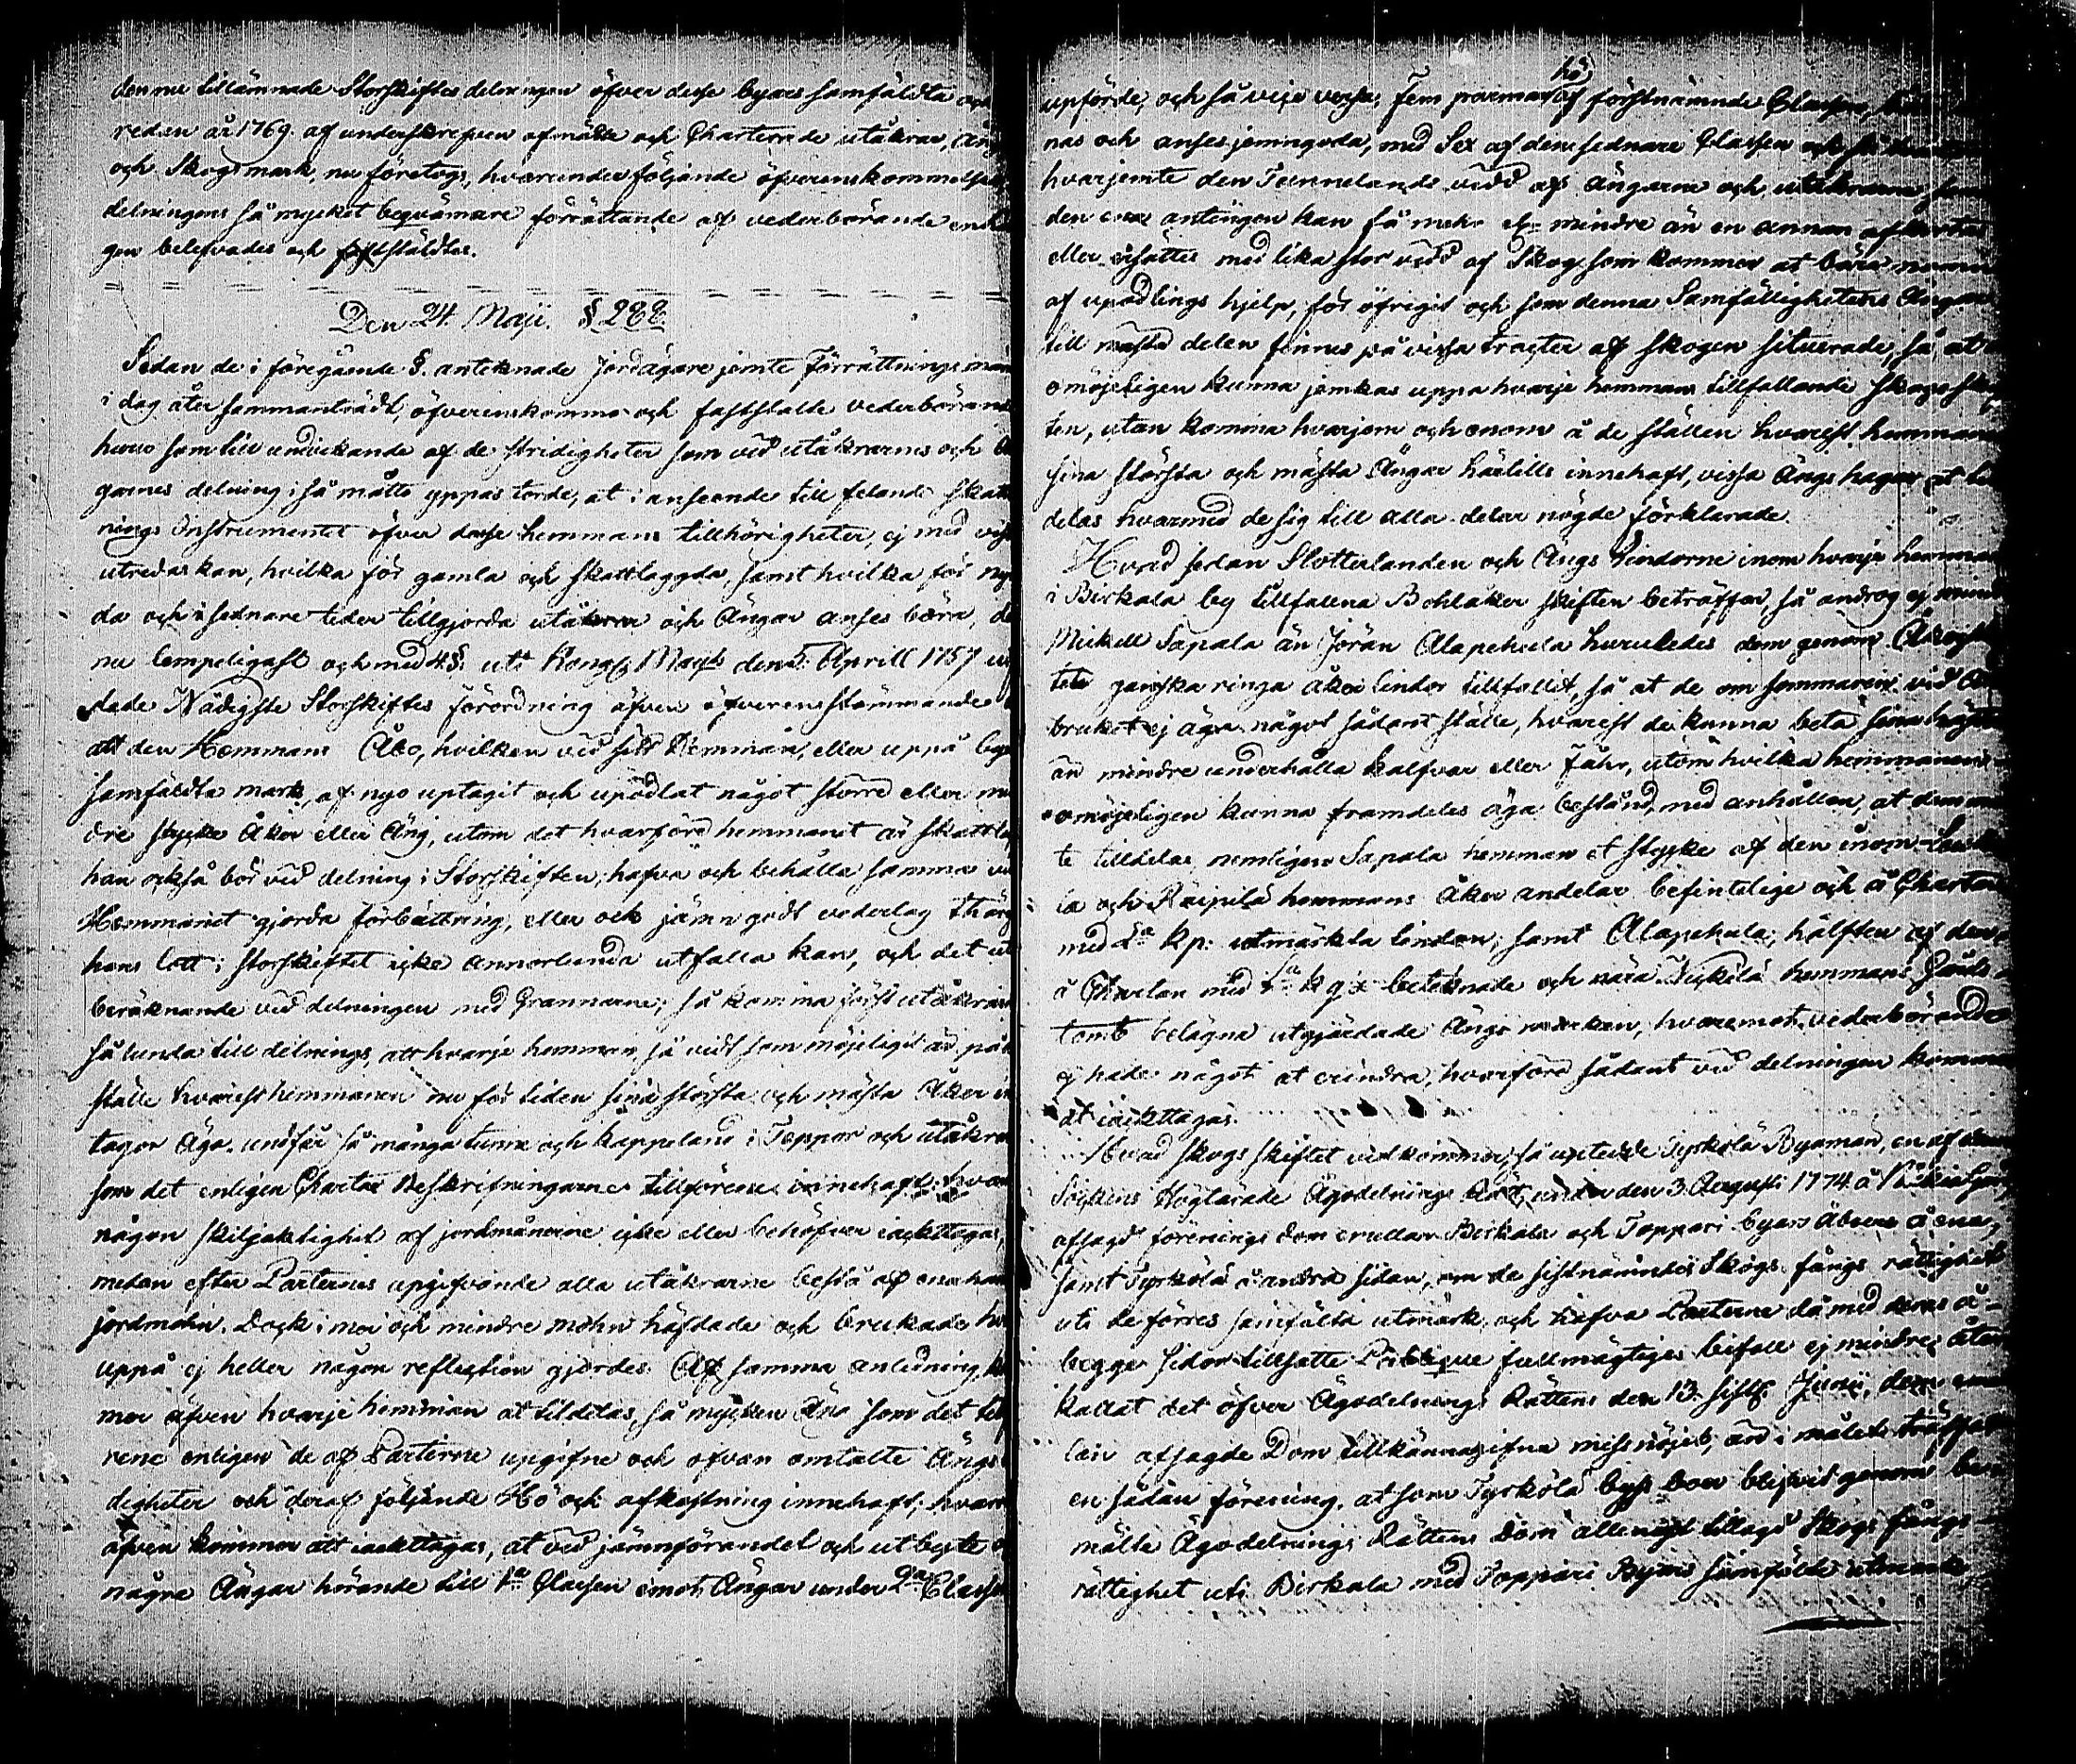 denne tillämnade Storskiftes delningen öfver desse byars samfäldta och
redan år 1769 af underskrefven afmätte och Charterade utåkrar, äng
och Skogsmark, nu företogs, hvarunder följande öfverenskommelse
delningens så mycket beqvämare förrättande af vederbörande enhä
gen belefvades och fastställdtes.
Den 24. Maji. § 288.
Sedan de i föregående §. anteknade Jordägare jemte Förrättningsmän
i dag åter sammanträdt, öfverenskommo och fastställte vederbörand
huru som till undvikande af de stridigheter som vid utåkrarnes och än
garnes delning i så måtto yppas torde, at i anseende till felande skatt
nings Instrumentet öfver desse hemmans tillhörigheter, ej med viss
utredas kan, hvilka för gamla och skattlaggda, samt hvilka för nyo
da och i sednare tider tillgjorda utåkrar och Ängar anses böra, de
nu lempeligast och med 4 §. uti Kongl. Majts den 5. Aprill 1757 ut
dade Nådigste Storskiftes förordning äfven öfverensstämmande
att den Hemmans Åbo, hvilken vid sitt Hemman, eller uppå byns
samfäldta mark, af nyo uptagit och upodlat något större eller min
dre stycke Åker eller Äng, utom det hvarföre hemmanet är skattlag
han också bör vid delning i Storskiften, hafva och behålla samma vid
Hemmanet gjorda förbättring, eller och jämn godt vederlag therf
hans lott i storskiftet icke annorlunda utfalla kan, och det ut
beräknande vid delningen med Grannarne; så komma först utåkrarn
så lunda till delnings, att hvarje hemman så vidt som möjeligit är på d
ställe hvarest hemmanen nu för tiden sina största och mästa Åker in
tagor äga, undfår så många tunne och kappeland i Teppor och utåkrar
som det enligen Chartæ Beskrifningarne tillförene innehaft hvar
någon skiljaktighet af jordmånerne icke eller behöfver iackttagas,
medan efter Parternes upgifvande alla utåkrarne bestå af enahan
jordmohn. Dock i mer och mindre mohn häfdade och brukade hv
uppå ej heller någon reflection gjordes. Af samma anledning ko
mer äfven hvarje hemman at tildelas, så mycken Äng som det till
rene enligen de af Parterne upgifne och ofvan omtalte Ängs
digheter och deraf följande Hö och afkastning innehaft; hvarv
äfven kommer att iackttagas, at vid jämnförandet och utbyte a
någre Ängar hörande till 1:a Classen emot Ängar under 2:dra Classen
hö
upförde, och så vice versa, Fem parmar af förstnämnde Classen,
nas och anses jemngoda, med Sex af den sednare Classen och
hvarjemte den Tunnelands vidd af ängarne och utåkrarne,
den ena antingen kan få mehr el: mindre än en annan afkortas
eller ersättes med lika stor vidd af Skog som kommer at bära namn
af upodlings hjelp, för öfrigit och som denna Samfällighetens Ängar
till mästa delen finnes på vissa tracter af skogen situerade, så at
omöjeligen kunna jemkas uppå hvarje hemmans tillfallande skogsskif
ten, utan komma hvarjom och enom å de ställen hvarest hemman
sina största och mästa Ängar härtills innehaft, vissa Ängs hagar at til
delas hvarmed de sig till alla delar nögde förklarade.
Hvad sedan Slotterlanden och Ängs Lindorne inom hvarje hemman
i Birkala by tillfallna Bohlåker skiften beträffar, så androg ej mind
Mickell Sapala än Jöran Alapehula huruledes dem genom Åkersk
tet ganska ringa åker lindor tillfallit, så at de om sommaren vid Åk
bruket ej äga något sådant ställe, hvarest de kunna beta sina hästar
än mindre underhålla kalfvar eller Fåhr, utom hvilka hemmanen
omöjeligen kunna framdeles äga bestånd, med anhållan, at dem
te tilldelas nemligen Sapala hemman et stycke af den inom
la och Räipilä hemmans Åker andelar befintelige och å Chartan
med L:a kp. utmärkta linden, samt Alapehula, hälften af den
å Chartan med L:a k g x beteknade och nära Nickilä hemmans
tomt belägna utgjärdade Ängs marken, hvaremot vederbörande
ej hade något at erindra, hvarföre sådant vid delningen kommer
at iackttagas.
Hvad skogs skiftet vedkommer, så uptedde Tyrkölä Byaman, en af denna
Sockens Höglärade Ägodelnings Rätt under den 3 Augusti 1774 å
afsagd förenings dom emellan Birkala och Toppari byars Åboer å ena,
samt Tyrkölä å andra sidan, om de sistnämndes Skogs fångs rättighet
uti de förres samfälta utmark, och hafva Parterne då med deras å
begge sidor tillsatte Publique fullmägtiges bifall ej mindre åter
kallat det öfver Ägodelnings Rättens den 13. sistl. Junii, den
läi afsagde Dom tillkännagifna missnöjet, än i målet träffat
en sådan förening, at som Tyrkölä bys boer blifvit genom ber
mälte Ägodelnings Rättens Dom allenast tillagd Skogs fångs
rättighet uti Birkala med Toppari Byars samfälda utmark